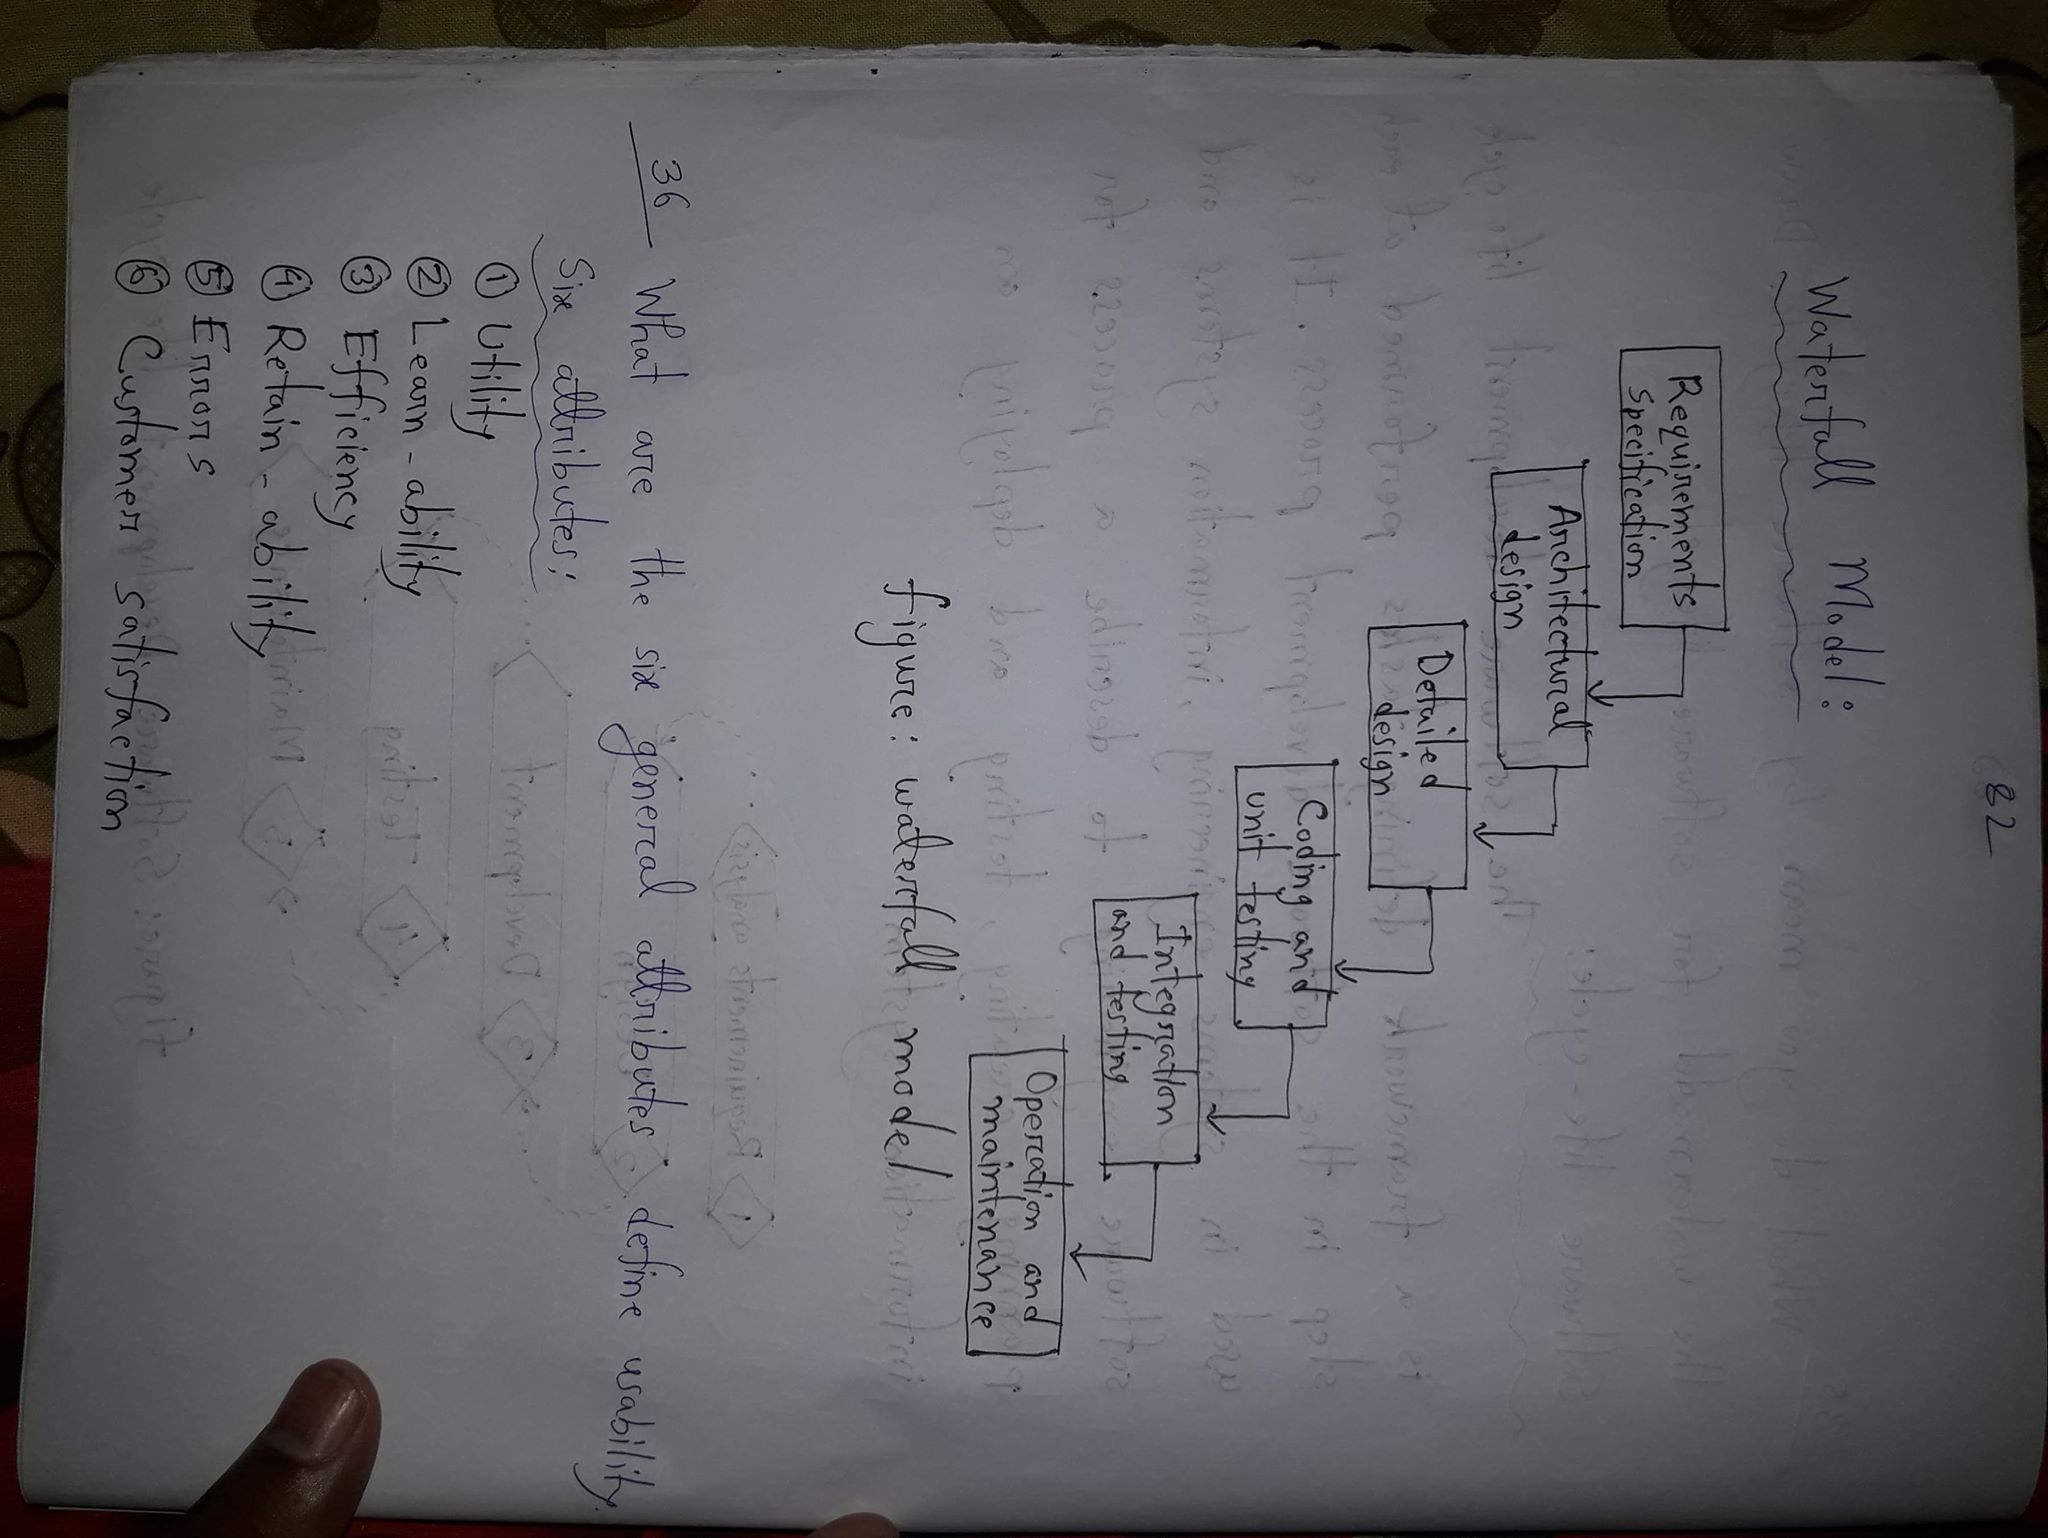 82
Waterfall Model:
Requirements
specification
Architectural
design
Detailed
design
Coding and
unit testing
Integration
and testing
Operation and
maintenance
figure: waterfall model
36 What are the six general attributes define usability.
Six attributes:
① Utility
② Learn-ability
③ Efficiency
④ Retain-ability
⑤ Errors
⑥ Customer satisfaction